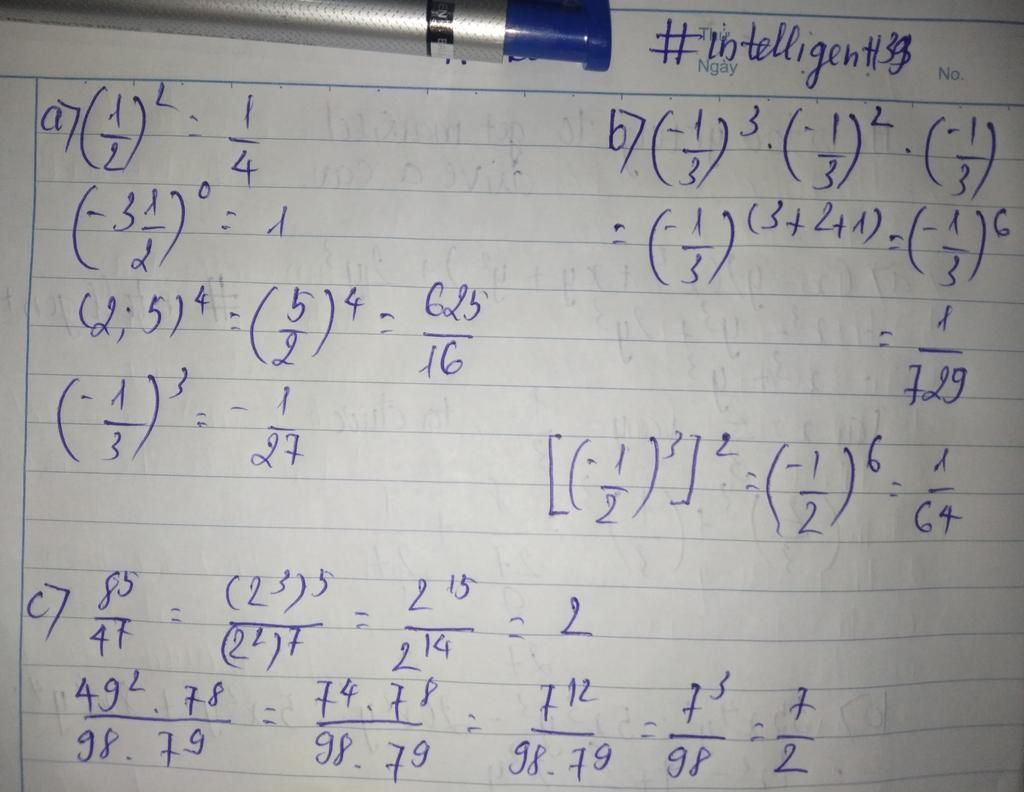 #intelligent133
Thứ
Ngày
No.
a) (1/2)² = 1/4
(-3 1/2)⁰ = 1
(2;5)⁴ = (5/2)⁴ = 625/16
(-1/3)³ = -1/27
b) (-1/3)³ . (-1/3)² . (-1/3)
= (-1/3)⁽³⁺²⁺¹⁾ = (-1/3)⁶
= 1/729
[(-1/2)³]² = (-1/2)⁶ = 1/64
c) 8⁵/4⁷ = (2³)⁵/(2²)⁷ = 2¹⁵/2¹⁴ = 2
49² . 7⁸/98 . 7⁹ = 7⁴ . 7⁸/98 . 7⁹ = 7¹²/98 . 7⁹ = 7³/98 = 7/2